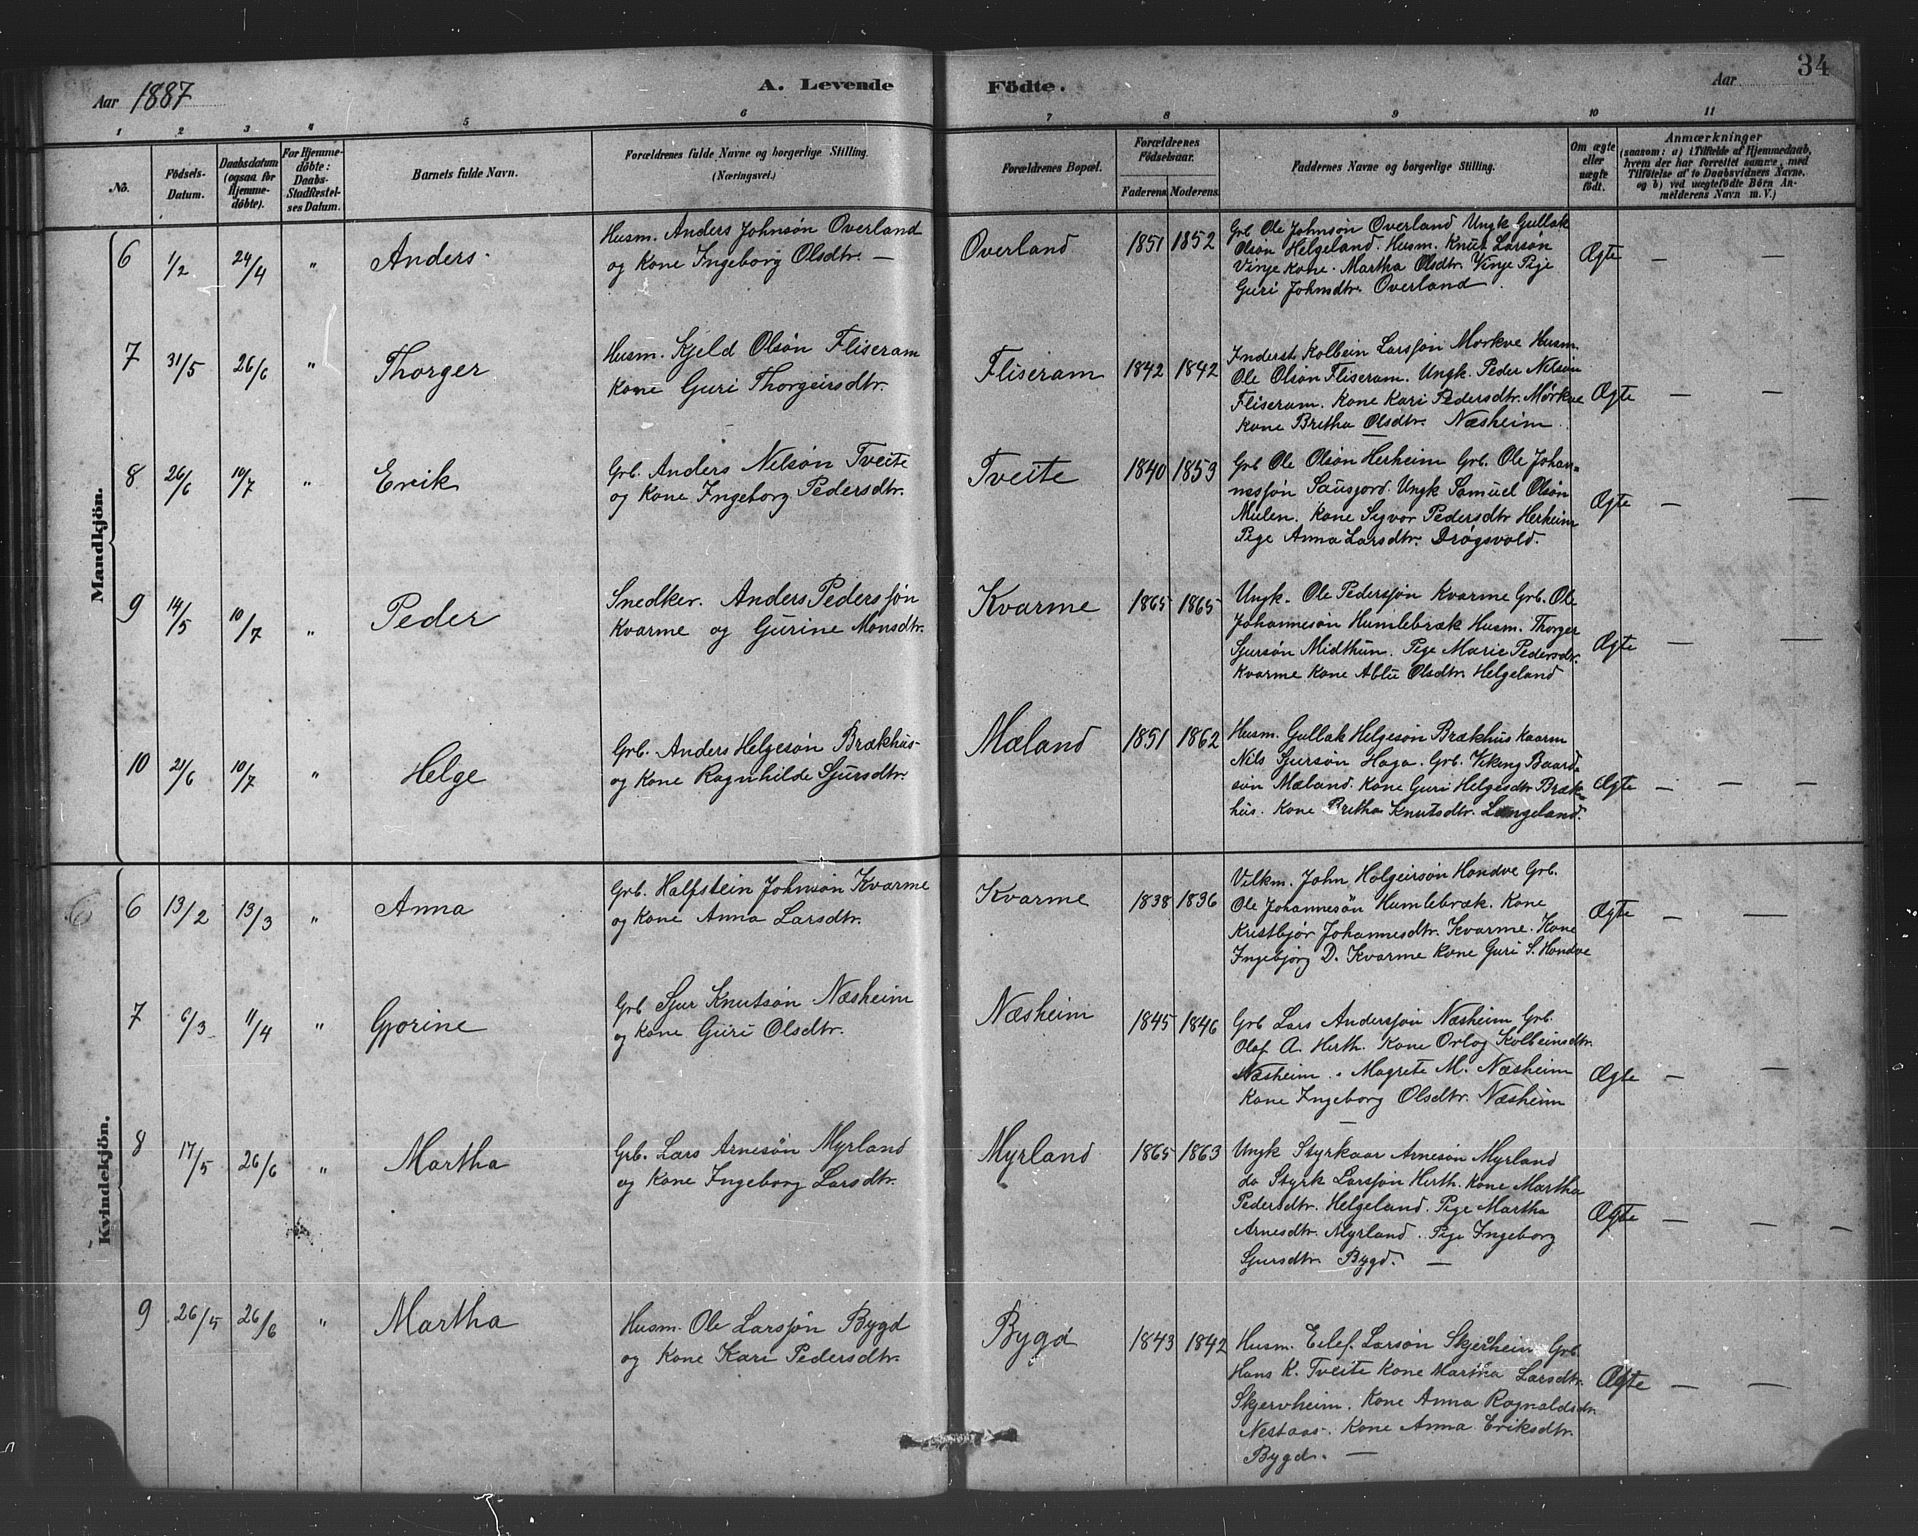 Aar 1887
A. Levende Födte.
Aar
34
1 2 3 4 5 6 7 8 9 10 11
No.
Födsels-
Datum.
Daabsdatum
(ogsaa for
Hjemme-
döbte).
For Hjemme-
döbte:
Daabs-
StadfRestel-
ses Datum.
Barnets fulde Navn.
Forældrenes fulde Navne og borgerlige Stilling.
(Næringsvei.)
Forældrenes Bopæl.
Forældrenes
Födselsaar.
Faderens. Moderens.
Faddernes Navne og borgerlige Stilling.
Om ægte
eller
uægte
födt.
Anmærkninger
(saasom: a) i Tilfælde af Hjemmedaab,
hvem der har forrettet samme, med
Tilföielse af to Daabsvidners Navne,
og b) ved uægtefödte Börn An-
melderens Navn m. V.)
Mandkjön.
6 1/2 24/4 " Anders
Husm. Anders Johnsøn Overland
og Kone Ingeborg Olsdtr. —
Overland 1851 1852
Grb Ole Johnsøn Overland Ungk Gullak
Olsøn Helgeland. Husm. Knut Larsøn
Vinje Kone. Martha Olsdtr. Vinje Pige
Guri Johnsdtr. Overland.
Ægte — —
7 31/5 26/6 " Thorger
Husm. Kjeld Olsøn Fliseram
Kone Guri Thorgeirsdtr.
Fliseram 1842 1842
Inderst Kolbein Larsjøn Mørkve Husm.
Ole Olsøn Fliseram. Ungk. Peder Nelsøn
Fliseram. Kone Kari Pedersdtr. Mørkve
Kone Britha Olsdtr. Næsheim.
Ægte — —
8 26/6 10/7 " Erik
Grb. Anders Nelsøn Tveite
og Kone Ingeborg Pedersdtr.
Tveite 1840 1853
Grb Ole Olsøn Herheim Grb. Ole Johan-
nessjøn Ungk Samuel Olsøn
Mulen. Kone Sygvor Pedersdtr Herheim
Pige Anna Larsdtr. Drøgsvold.
Ægte — —
9 14/5 10/7 " Peder
Snedker. Anders Pedersjøn
Kvarme og Gurine Monsdtr.
Kvarme 1865 1865
Ungk. Ole Pedersjøn Kvarme Grb. Ole
Johannesøn Humlebræk Husm. Thorger
Sjursøn Midthun. Pige Marie Pedersdtr.
Kvarme Kone Ablu Olsdtr. Helgeland
Ægte — —
10 2/6 10/7 " Helge
Grb. Anders Helgesøn Brækhus-
og Kone Ragnhilde Sjursdtr.
Mæland 1851 1862
Husm. Gullak Helgesøn Brækhus Kaarm
Nils Sjursøn Haga. Grb. Viking Baard-
søn Mæland. Kone Guri Helgesdtr Bræk-
hus. Kone Britha Knutsdtr. Langeland.
Ægte — — —
Kvindekjön.
6 13/2 13/3 " Anna
Grb. Halfstein Johnsøn Kvarme
og Kone Anna Larsdtr.
Kvarme 1838 1836
Vilkm. John Holgeirsøn Hondve Grb.
Ole Johannesøn Humlebræk. Kone
Kristbjør Johannesdtr. Kvarme. Kone
Ingebjørg D. Kvarme Kone Guri S. Hondve
Ægte — —
7 6/3 11/4 " Gjorine
Grb Sjur Knutsøn Næsheim
og Kone Guri Olsdtr.
Næsheim 1845 1846
Grb Lars Andersjøn Næsheim Grb.
Olaf A. Herth. Kone Orlog Kolbeinsdtr.
Næsheim. Magrete M. Næsheim
Kone Ingeborg Olsdtr. Næsheim
—
Ægte — —
8 17/5 26/6 " Martha
Grb. Lars Arnesøn Myrland
og Kone Ingeborg Larsdtr.
Myrland 1865 1863
Ungk Styrkaar Arnesøn Myrland
do Styrk Larsjøn Herth. Kone Martha
Pedersdtr. Helgeland. Pige Martha
Arnesdtr. Myrland. Pige Ingeborg
Sjursdtr Bygd. —
Ægte — — —
9 26/5 26/6 " Martha
Husm. Ole Larsjøn Bygd
og Kone Kari Pedersdtr.
Bygd 1843 1842
Husm. Eilef. Larsøn Skjerheim Grb.
Hans K. Tveite Kone Martha Larsdtr.
Skjervheim. Kone Anna Ragnaldsdtr.
Nestaas. Kone Anna Eriksdtr.
Bygd. —
Ægte — —